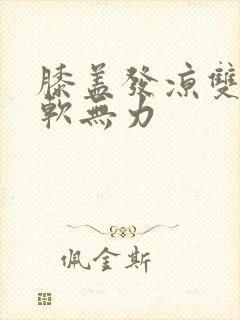 膝盖發凉雙
軟無力
佩金斯